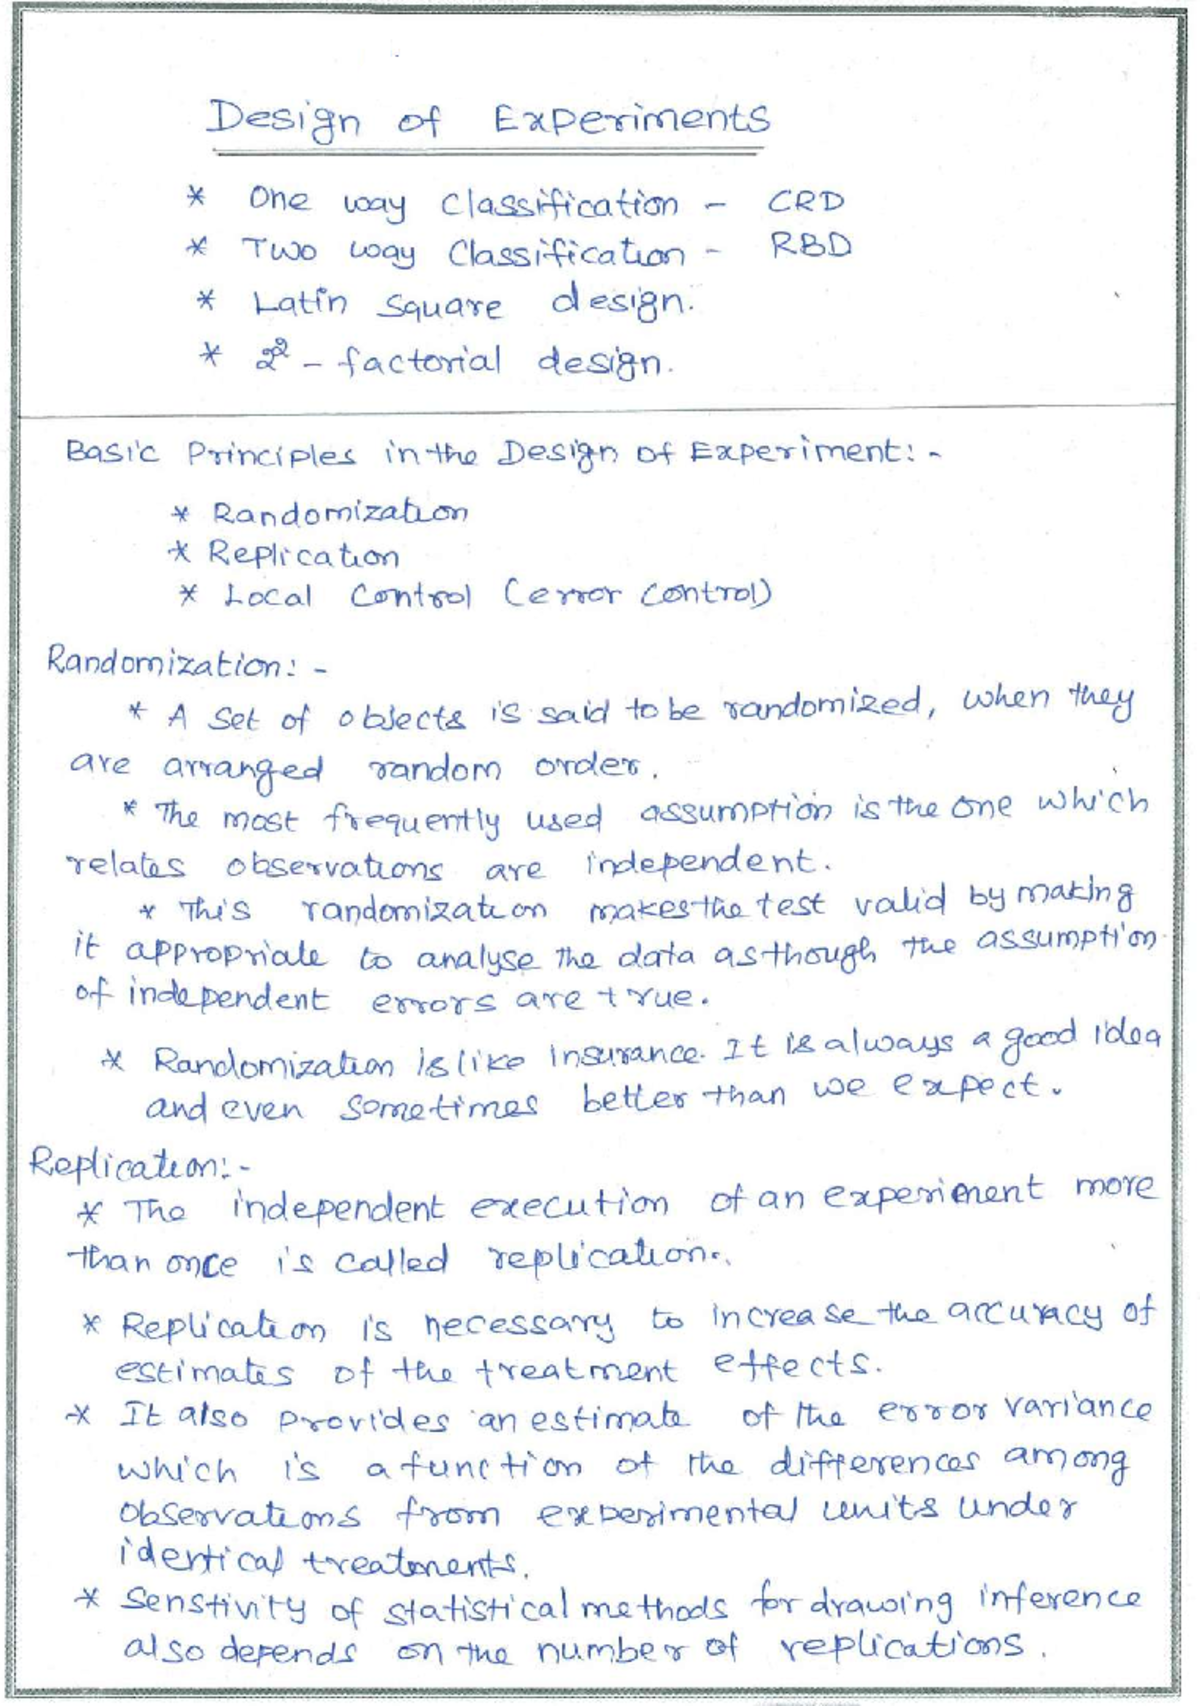 Design of Experiments
* One way Classification - CRD
* Two way Classification - RBD
* Latin Square design.
* 2² - factorial design.
Basic Principles in the Design of Experiment: -
* Randomization
* Replication
* Local Control (error control)
Randomization: -
* A set of objects is said to be randomized, when they
are arranged random order.
* The most frequently used assumption is the one which
relates observations are independent.
* This randomization makes the test valid by making
it appropriate to analyse the data as though the assumption
of independent errors are true.
* Randomization is like insurance. It is always a good idea
and even sometimes better than we expect.
Replication: -
* The independent execution of an experiment more
than once is called replication.
* Replication is necessary to increase the accuracy of
estimates of the treatment effects.
* It also provides an estimate of the error variance
which is a function of the differences among
observations from experimental units under
identical treatments.
* Senstivity of statistical methods for drawing inference
also depends on the number of replications.